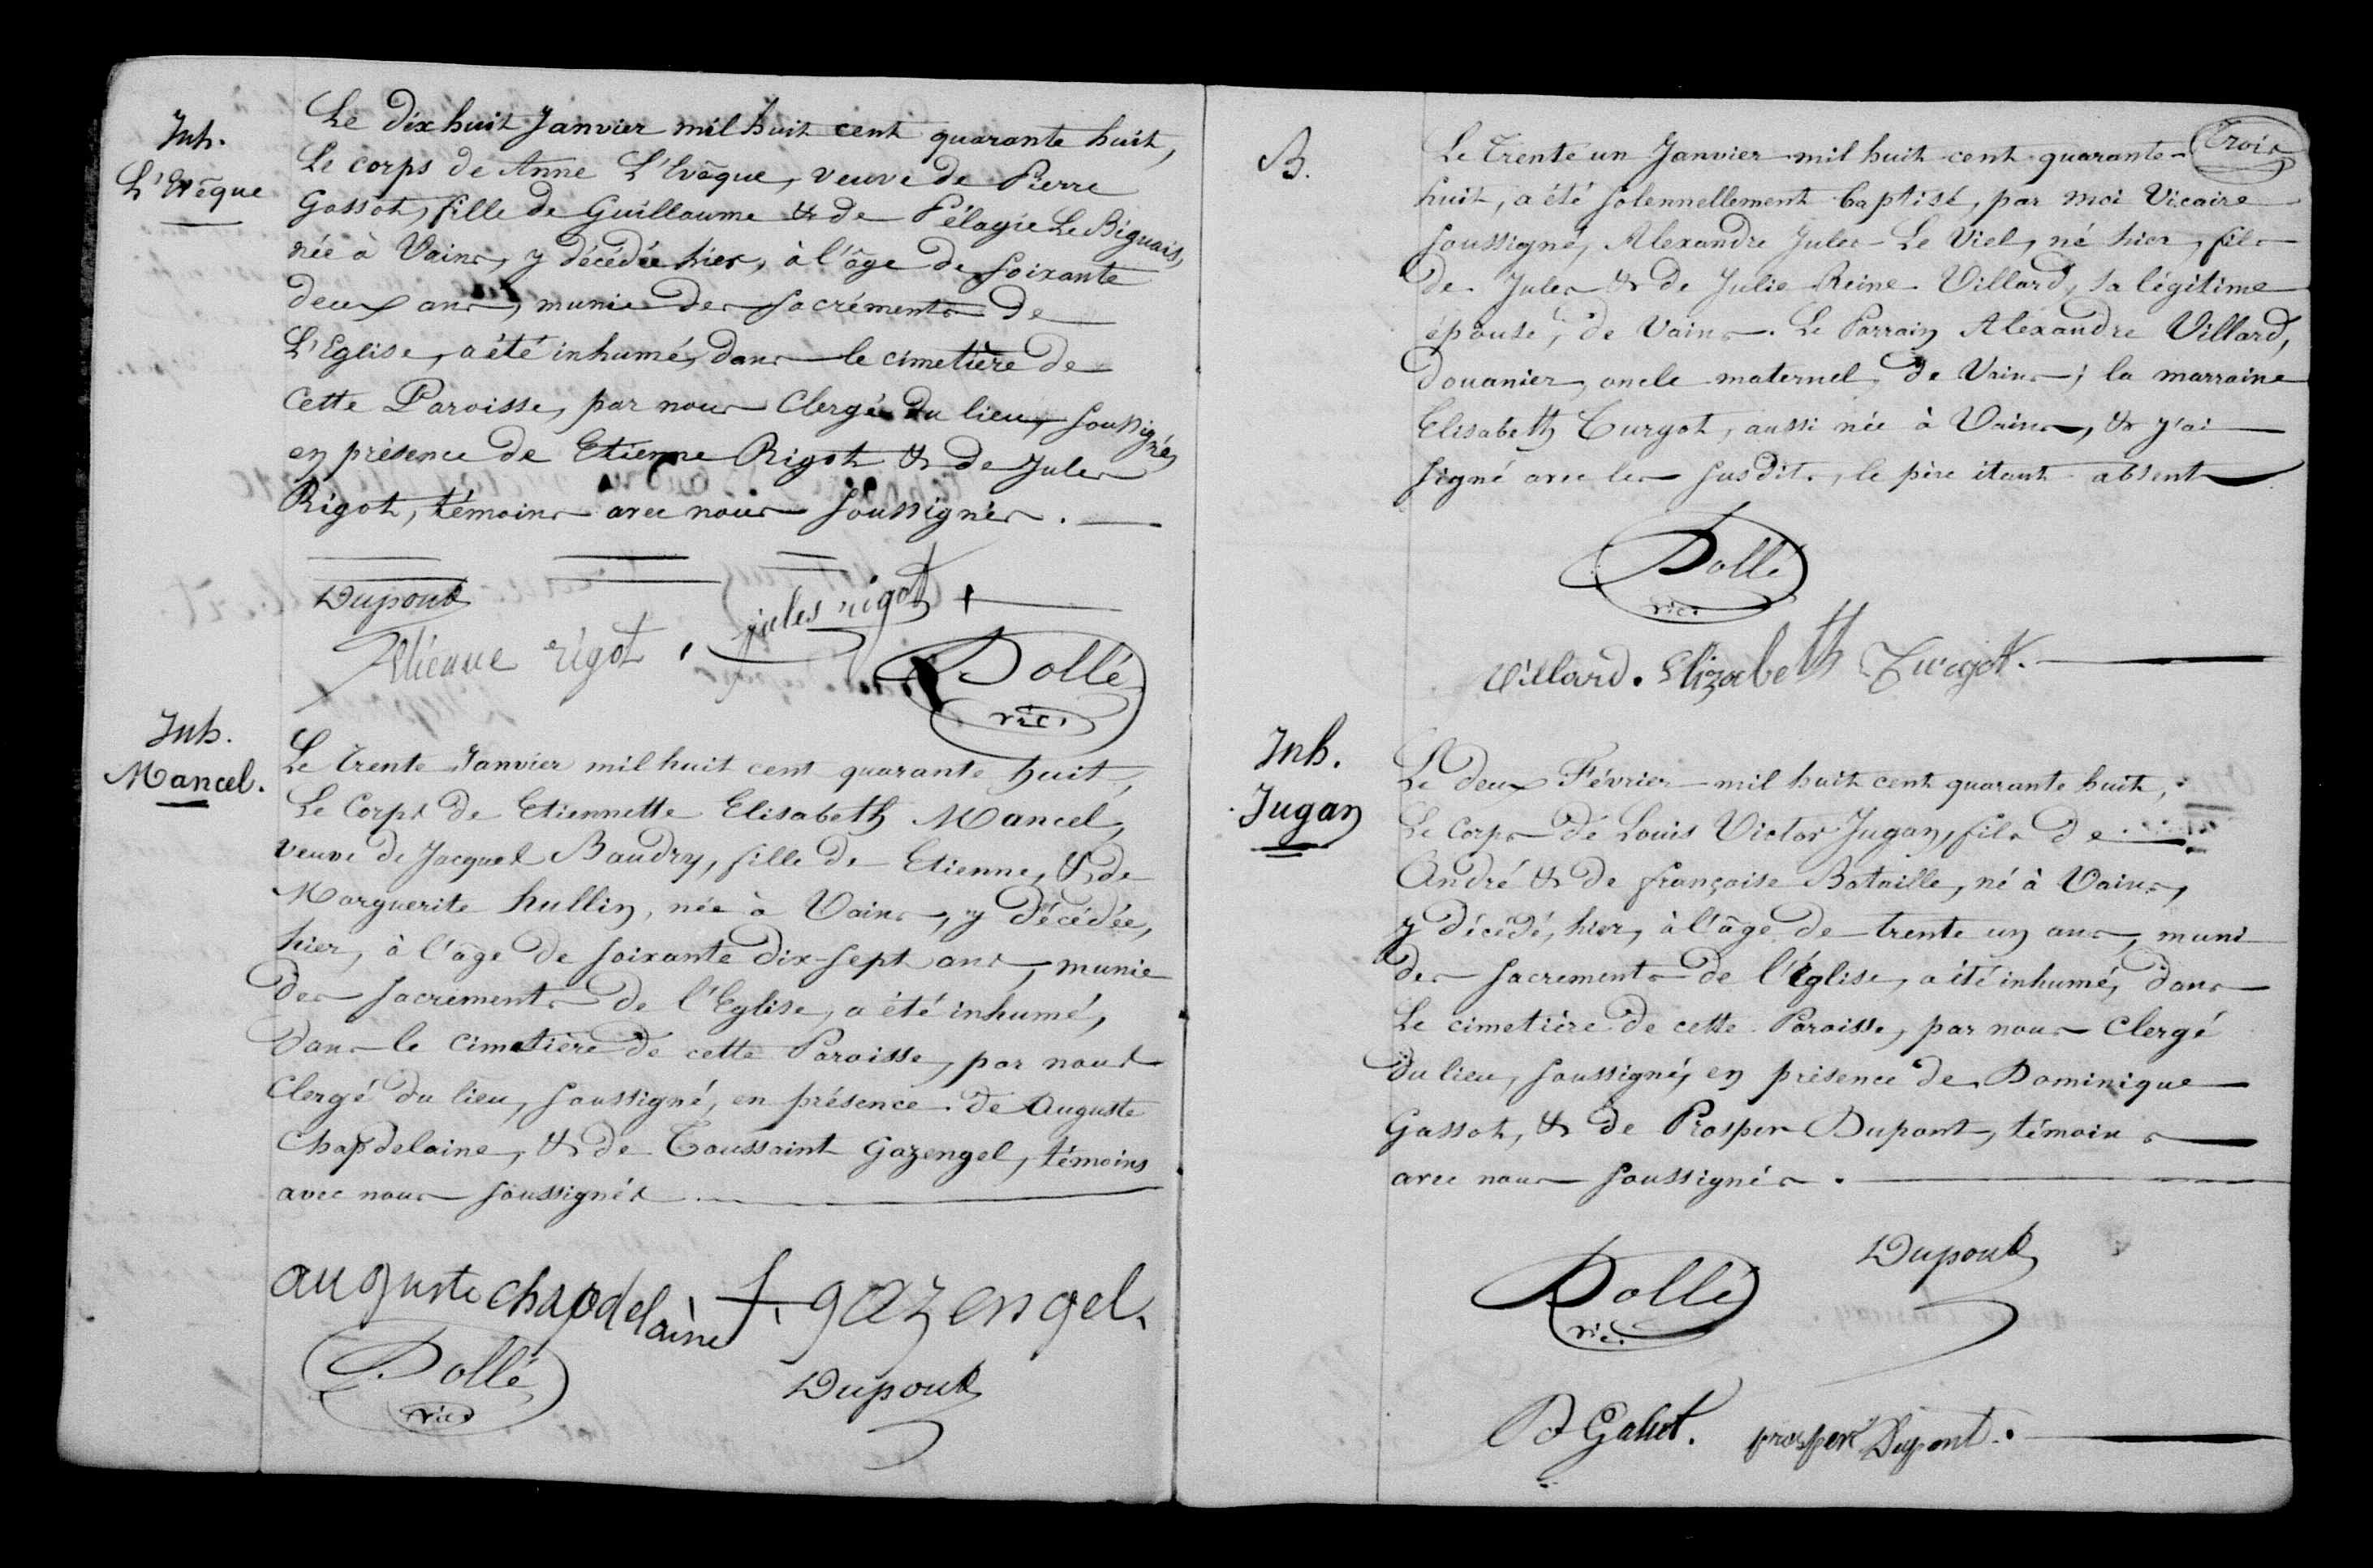 Inh.
L'Evêque
Le dix huit Janvier mil huit cent quarante huit,
Le corps de Anne L'Evêque, veuve de Pierre
Gassot, fille de Guillaume & de Pélagie Le Biguais,
née à Vains, y décédée hier, à l'âge de soixante
deux ans, munie des sacréments de
L'Eglise, a été inhumé, dans le cimetière de
Cette Paroisse, par nous Clergé du lieu, soussigné,
en présence de Etienne Rigot & de Jules
Rigot, témoins avec nous soussignés.
Dupont
Etienne rigot. jules rigot
Dollé
vic.
Inh.
Mancel.
Le trente Janvier mil huit cent quarante huit,
Le Corps de Etiennette Elisabeth Mancel,
veuve de Jacques Baudry, fille de Etienne, & de
Marguerite hullin, née à Vains, y décédée,
hier, à l'âge de soixante dix-sept ans, munie
des sacrements de l'Eglise, a été inhumé,
Dans le cimetière de cette Paroisse, par nous
Clergé du lieu, soussigné, en présence de Auguste
Chapdelaine, & de Toussaint Gazengel, témoins
avec nous soussignés.
auguste chapdelaine f. gazengel.
Dollé
vic.
Dupont
Trois
B.
Le trente un Janvier mil huit cent quarante-
huit, a été solennellement baptisé, par moi Vicaire
soussigné, Alexandre Jules Le Viel, né hier, fils
de Jules & de Julie Reine Villard, sa légitime
épouse, de Vains. Le Parrain Alexandre Villard,
Douanier, oncle maternel, de Vains; la marraine
Elisabeth Turgot, aussi née à Vains, & j'ai
signé avec les susdits, le père étant absent
Dollé
vic.
Villard. Elizabeth Turgot.
Inh.
Jugan
Le deux Février mil huit cent quarante huit,
Le Corps de Louis Victor Jugan, fils de
André & de françoise Bataille, né à Vains,
y décédé, hier, à l'âge de trente un ans, muni
des sacrements de l'église, a été inhumé, dans
Le cimetière de cette Paroisse, par nous Clergé
du lieu, soussigné, en présence de Dominique
Gassot, & de Prosper Dupont, témoins
avec nous soussignés.
Dollé
vic.
Dupont
prosper Dupont.